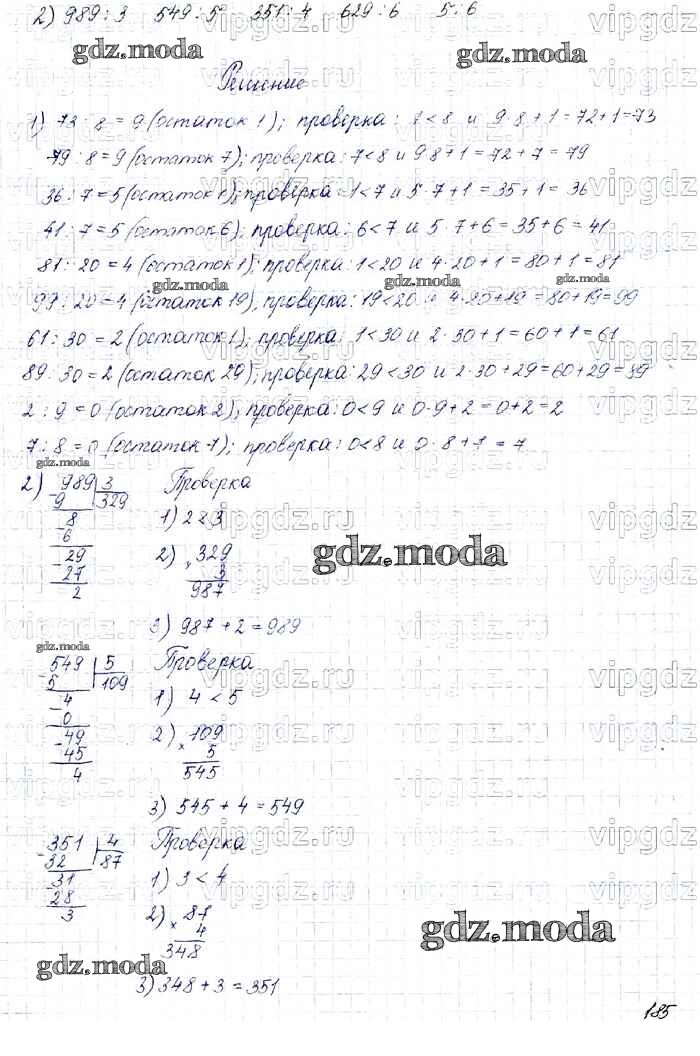 2) 989 : 3 549 : 5 351 : 4 629 : 6 5 : 6
gdz.moda gdz.moda
Решение
1) 73 : 8 = 9 (остаток 1); проверка: 1 < 8 и 9·8+1=72+1=73
79 : 8 = 9 (остаток 7); проверка: 7<8 и 9·8+1=72+7=79
36 : 7 = 5 (остаток 1); проверка: 1<7 и 5·7+1=35+1=36
41 : 7 = 5 (остаток 6); проверка: 6<7 и 5·7+6=35+6=41
81 : 20 = 4 (остаток 1); проверка: 1<20 и 4·20+1=80+1=81
gdz.moda gdz.moda gdz.moda
99 : 20 = 4 (остаток 19), проверка: 19<20 и 4·20+19=80+19=99
61 : 30 = 2 (остаток 1); проверка: 1<30 и 2·30+1=60+1=61
89 : 30 = 2 (остаток 29); проверка: 29<30 и 2·30+29=60+29=89
2 : 9 = 0 (остаток 2); проверка: 0<9 и 0·9+2=0+2=2
7 : 8 = 0 (остаток 7); проверка: 0<8 и 0·8+7=7
gdz.moda
2) 989 3 Проверка
9 329
8 1) 2<3
6
29 2) × 329
27 3
2 987
gdz.moda
3) 987 + 2 = 989
gdz.moda
549 5 Проверка
5 109
4 1) 4 < 5
0
49 2) × 109
45 5
4 545
3) 545 + 4 = 549
351 4 Проверка
32 87
31 1) 3 < 4
28
3 2) × 87
4
348
gdz.moda
gdz.moda
3) 348 + 3 = 351
185